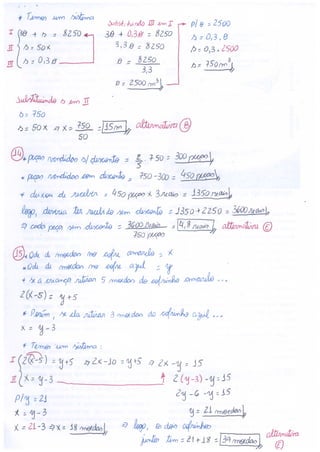 * Temos um sistema
I {3θ + s = 8250
II {s = 50x
III {s = 0,3θ
Substituindo III em I
3θ + 0,3θ = 8250
3,3θ = 8250
θ = 8250 / 3,3
θ = 2500 m³
p/ θ = 2500
s = 0,3.θ
s = 0,3.2500
s = 750 m³
Substituindo s em II
s = 750
s = 50x ⇒ x = 750 / 50 = 15m alternativa B
14 • peças vendidas c/ desconto = 750 = 300 peças
• peças vendidas sem desconto = 750 - 300 = 450 peças
* deixou de receber = 450 peças x 3 reais = 1350 reais
logo, deveria ter recebido sem desconto = 1350 + 2250 = 3600 reais
⇒ cada peça sem desconto = 3600 reais / 750 peças = 4,8 reais alternativa E
15 • Qde de moedas no cofre amarelo = x
• Qde de moedas no cofre azul = y
* se a criança retirar 5 moedas do cofrinho amarelo ...
2(x-5) = y+5
* Porém, se ela retirar 3 moedas do cofrinho azul ...
x = y-3
* Temos um sistema:
I {2(x-5) = y+5 ⇒ 2x-10 = y+5 ⇒ 2x-y = 15
II {x = y-3
2(y-3)-y = 15
2y-6-y = 15
y = 21 moedas
p/ y = 21
x = y-3
x = 21-3 ⇒ x = 18 moedas
⇒ logo, os dois cofrinhos
juntos tem = 21+18 = 39 moedas
alternativa E